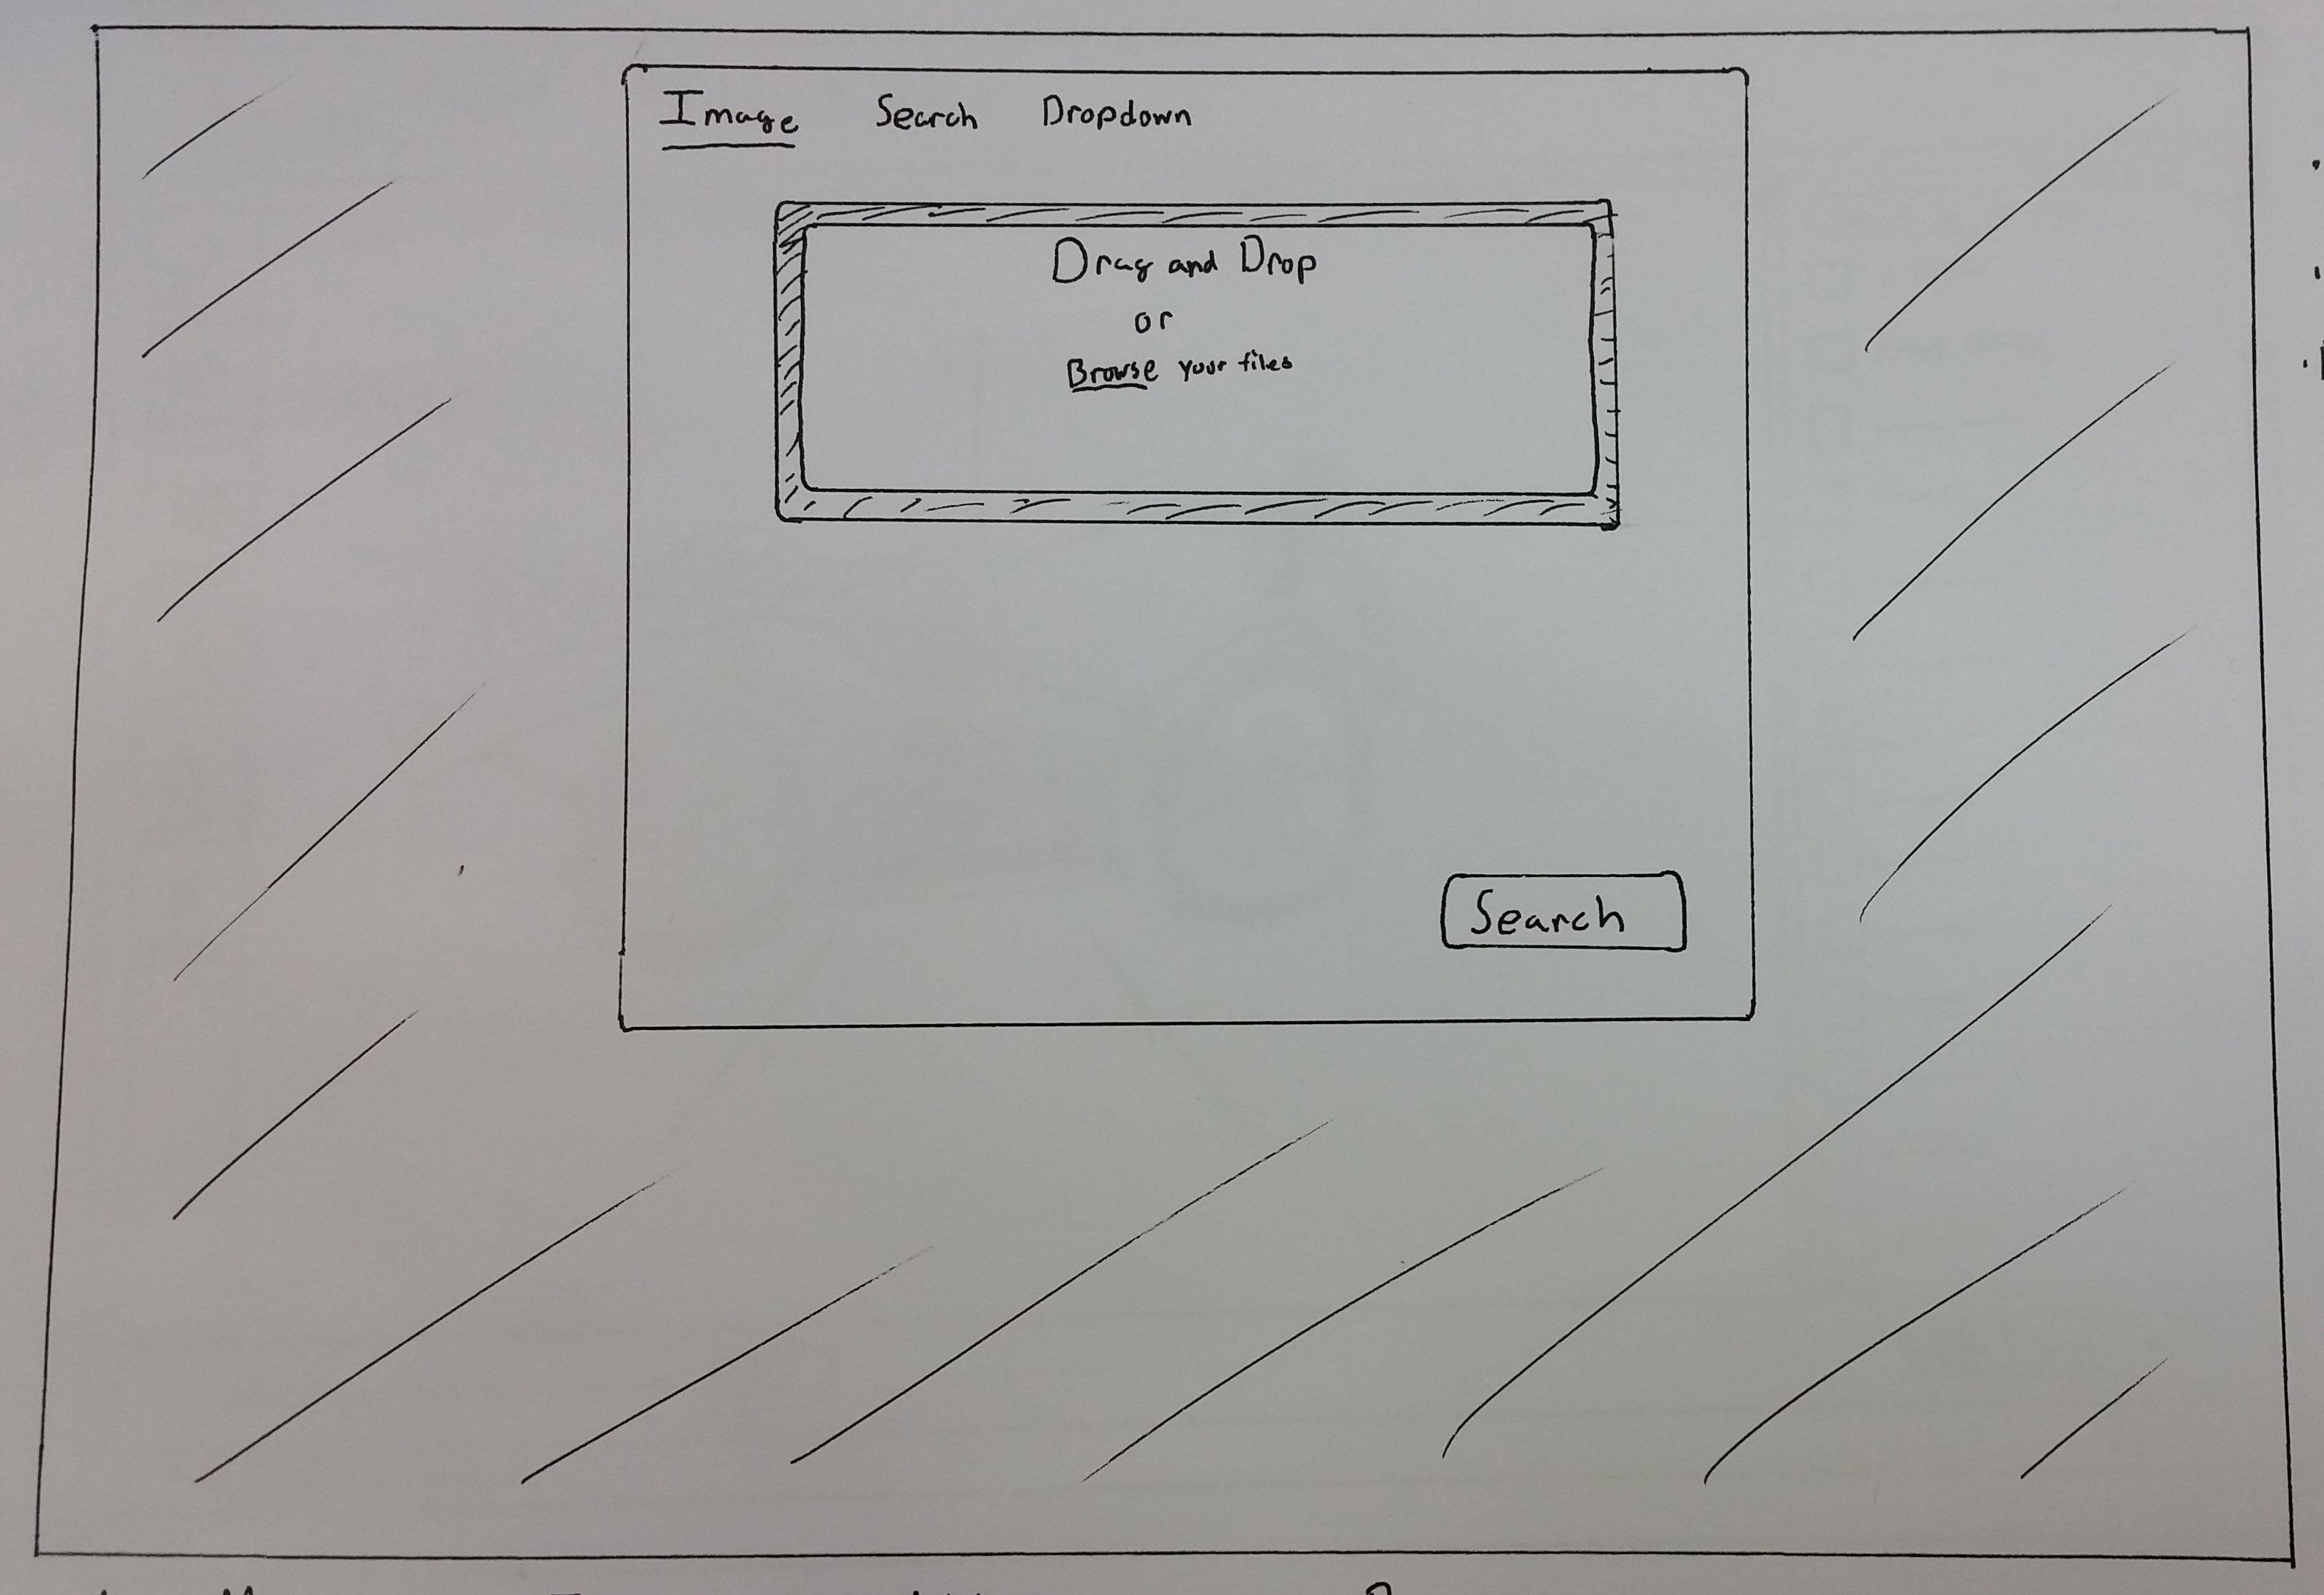 Image Search Dropdown
Drag and Drop
or
Browse your files
Search